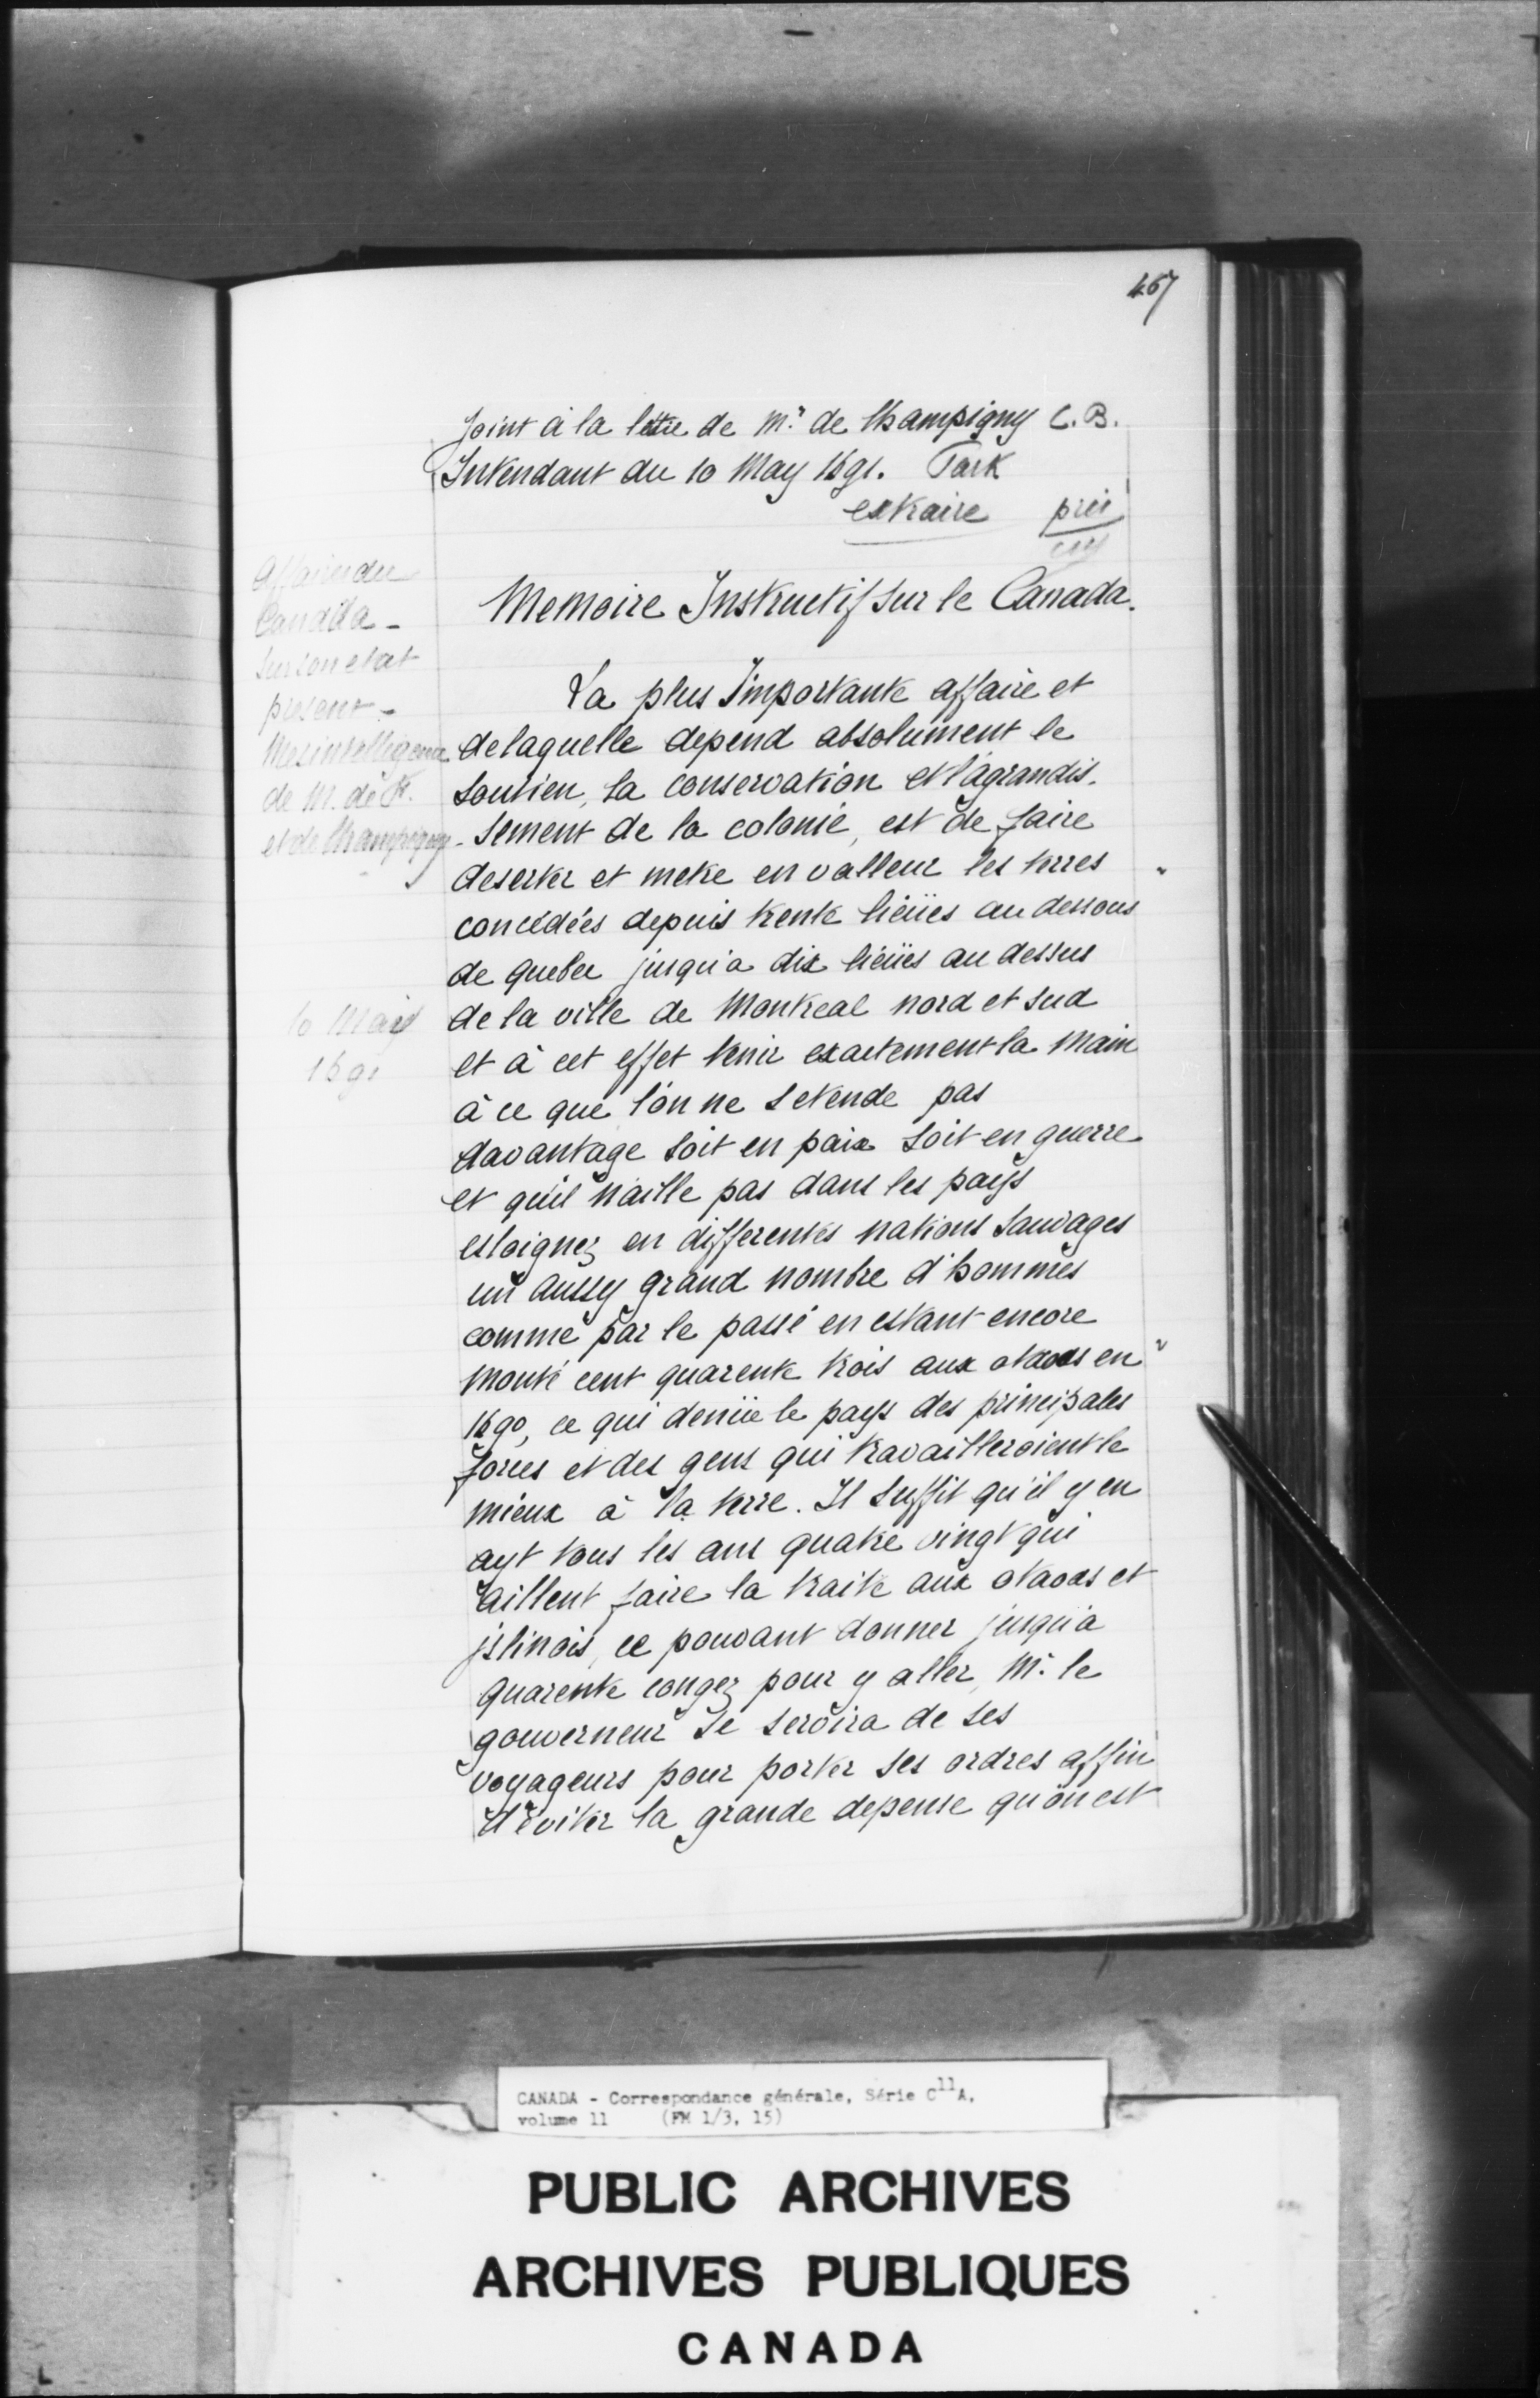 467
Joint à la lettre de Mr. de Champigny C. B.
Intendant du 10 May 1691. Park
extraire
Affaires du
Canada -
Sur son etat
present -
Mesintelligence
de M. de F.
et de Champigny
10 May
1691
Memoire Instructif sur le Canada.
La plus Importante affaire et
de laquelle depend absolument le
soutien, la conservation et l'agrandis-
sement de la colonie, est de faire
deserter et metre en valleur les terres
concédées depuis trente liëües au dessous
de quebec jusqu'a dix liëües au dessus
de la ville de Montreal nord et sud
et à cet effet tenir exactement la main
à ce que l'on ne setende pas
davantage soit en paix soit en guerre
et qu'il n'aille pas dans les pays
esloignez en differentes nations sauvages
un aussy grand nombre d'hommes
comme par le passé en estant encore
monté cent quarente trois aux otaoas en
1690, ce qui denüe le pays des principales
forces et des gens qui travailleroient le
mieux à la terre. Il suffit qu'il y en
ayt tous les ans quatre vingt qui
aillent faire la traite aux otaoas et
jslinois, ce pouvant donner jusqu'a
quarente congez pour y aller, Mr. le
gouverneur se servira de ses
voyageurs pour porter ses ordres affin
d'eviter la grande depense qu'on est
CANADA - Correspondance générale, Série C11A,
volume 11 (FM 1/3, 15)
PUBLIC ARCHIVES
ARCHIVES PUBLIQUES
CANADA